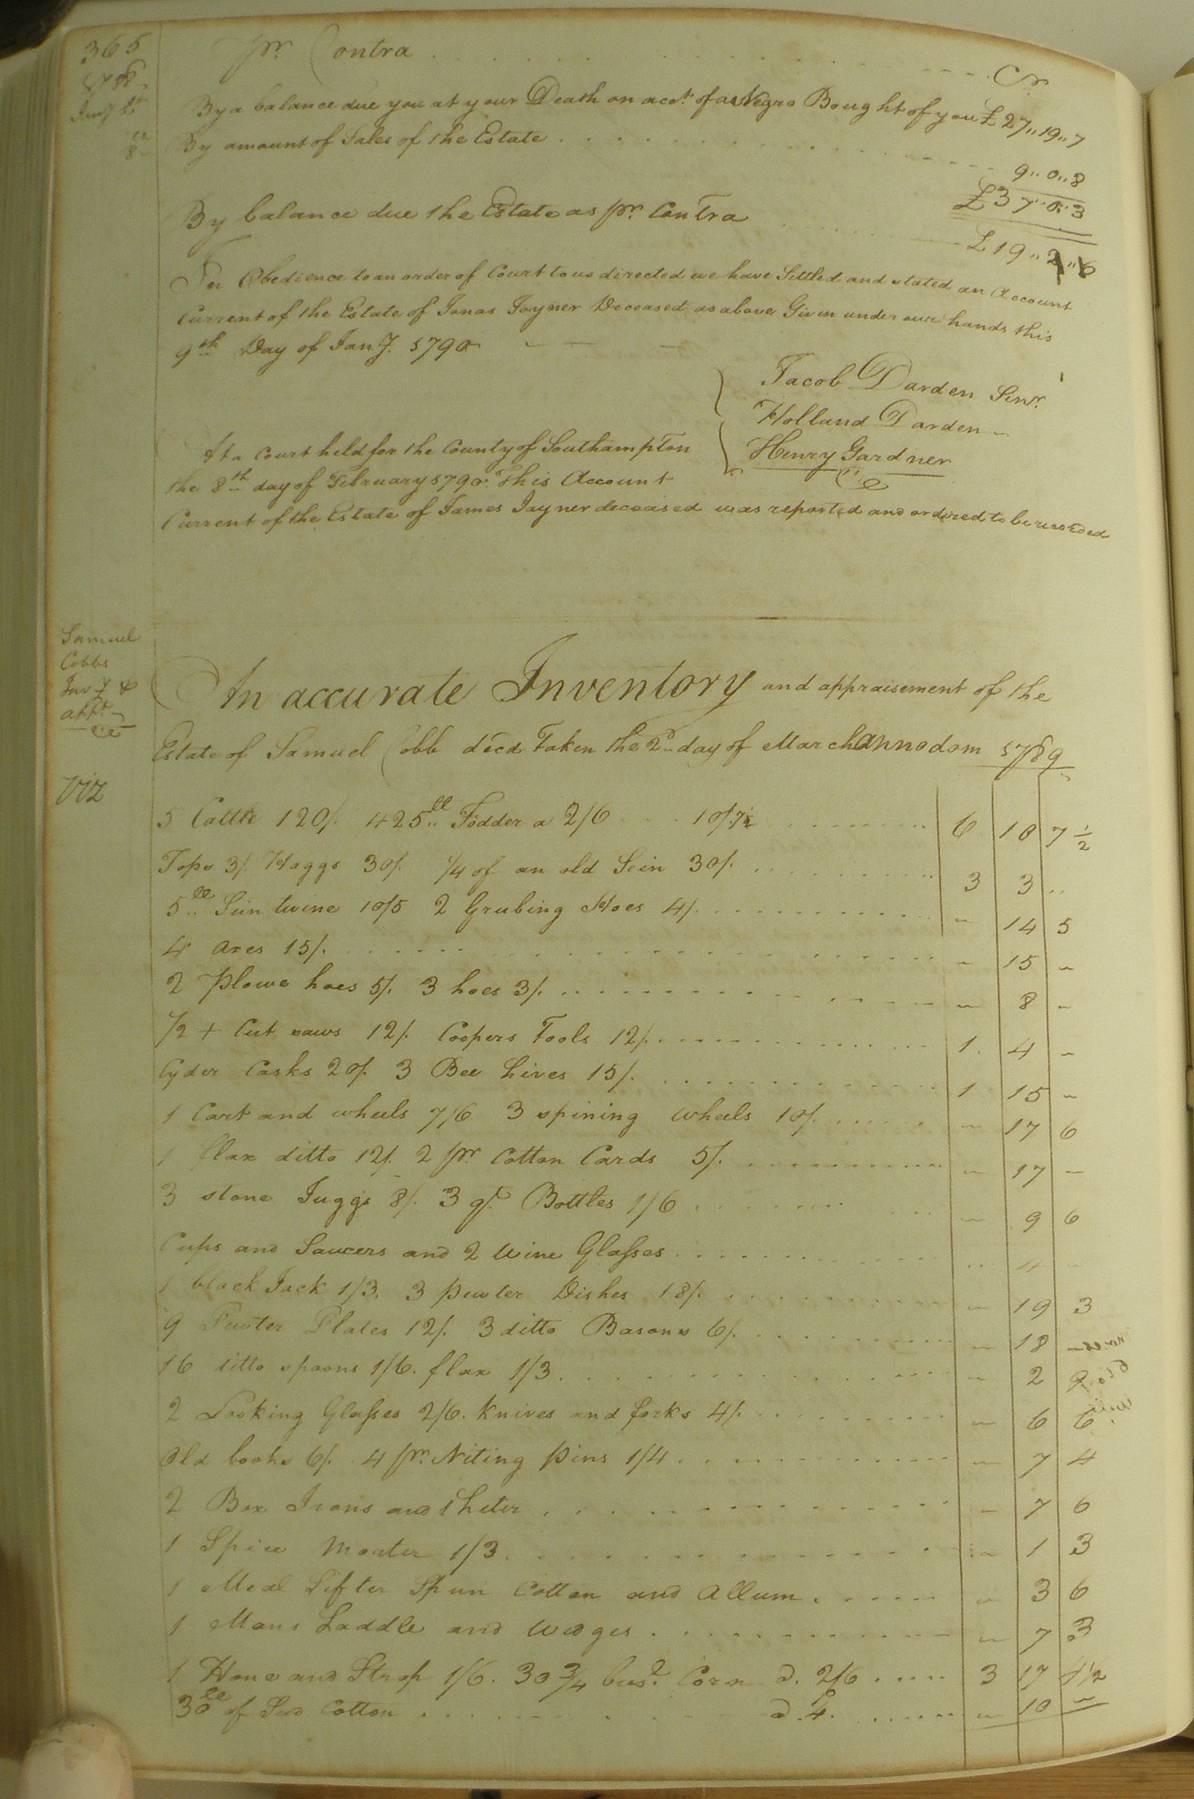 365
pr. Contra Cr
1788
Jany 2d
By a balance due you at your Death on acot. of a Negro Bought of you £ 27..19..7
By amount of Sales of the Estate 9..0..8
£37..0..3
By balance due the Estate as pr. Contra £19..2..6
In Obedience to an order of Court to us directed we have Settled and stated an Account
Current of the Estate of Jonas Joyner Deceased as above Given under our hands this
9th Day of Jany. 1790
Jacob Darden Senr.
Holland Darden
Henry Gardner
At a Court held for the County of Southampton
the 8th day of February 1790. This Account
Current of the Estate of James Joyner deceased was reported and ordered to be recorded
Samuel
Cobbs
Invy &
appt
An accurate Inventory and appraisement of the
Estate of Samuel Cobb decd Taken the 2nd day of March annodom 1789
Viz
5 Cattle 120/. 425 ll Fodder a 2/6 10/7½ 6 10 7½
Tops 3/. Hoggs 30/. 1/4 of an old Sein 30/. 3 3 ..
5 ll Sein twine 10/5 2 Grubing Hoes 4/. - 14 5
4 axes 15/. - 15 -
2 Plowe hoes 5/. 3 hoes 3/. - 8 -
1/2 + Cut saws 12/. Coopers Tools 12/. 1. 4 -
Cyder Casks 20/. 3 Bee hives 15/. 1 15 -
1 Cart and wheels 7/6 3 spining wheels 10/. - 17 6
1 flax ditto 12/. 2 pr Cotton Cards 5/. - 17 -
3 stone Juggs 8/. 3 qt. Bottles 1/6 - 9 6
Cups and Saucers and 2 Wine Glasses .. 4 -
1 black Jack 1/3. 3 pewter Dishes 18/. - 19 3
9 Pewter Plates 12/. 3 ditto Basons 6/. - 18 -
16 ditto spoons 1/6. flax 1/3 - 2 9
2 Looking Glasses 2/6. Knives and forks 4/. - 6 6
Old books 6/. 4 pr. Niting pins 1/4 - 7 4
2 Box Irons and heter - 7 6
1 Spice Morter 1/3 - 1 3
1 Meal Sifter Spun Cotton and Allum - 3 6
1 Mans Saddle and Wages - 7 3
1 Hone and Strop 1/6. 30 3/4 bus. Corn @. 2/6 3 17 4½
30 ll of Sed Cotton @. 4. - 10 -